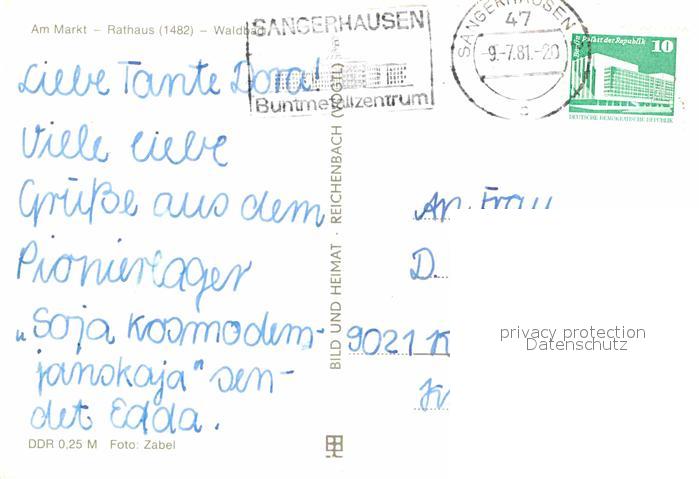 Am Markt – Rathaus (1482) – Waldbad
SANGERHAUSEN
Buntmetallzentrum
SANGERHAUSEN
47
-9.-7.81.-20
c
Berlin Palast der Republik 10
DEUTSCHE DEMOKRATISCHE REPUBLIK
Liebe Tante Dora!
Viele liebe
Grüße aus dem
Pionierlager
„Soja Kosmodem-
janskaja" sen-
det Edda.
DDR 0,25 M Foto: Zabel
BILD UND HEIMAT · REICHENBACH (VOGTL)
An Frau
D.
9021 K
privacy protection
Datenschutz